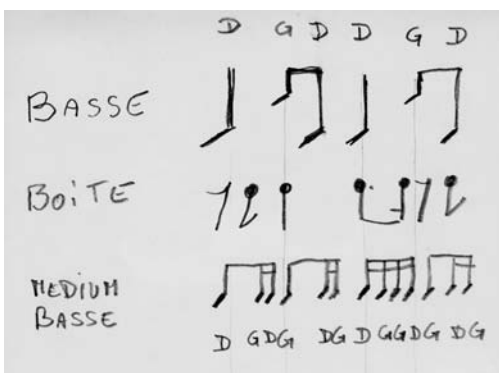 D G D D G D
BASSE
BOiTE
MEDIUM
BASSE
D GDG DG D GGDG DG